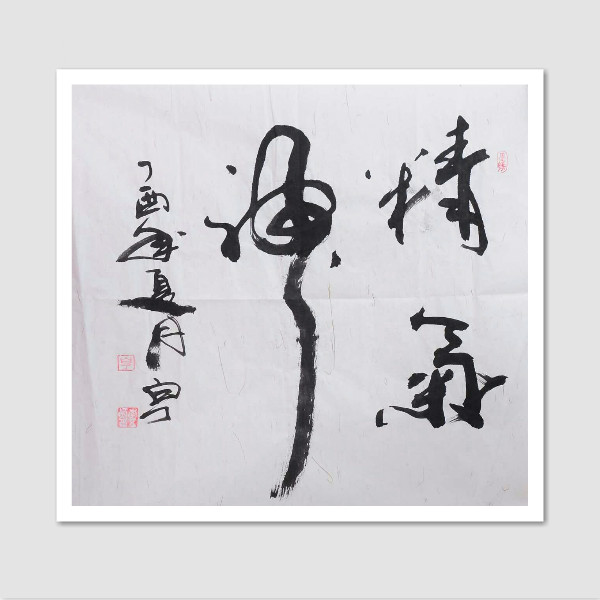 精氣
神
丁酉年夏月